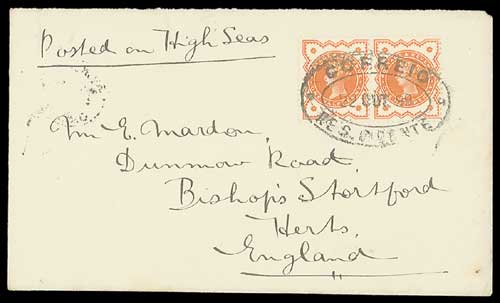 Posted on High Seas
CORREIO
OUT
Wm E. Mardon,
Dunmow Road,
Bishop's Stortford
Herts,
England